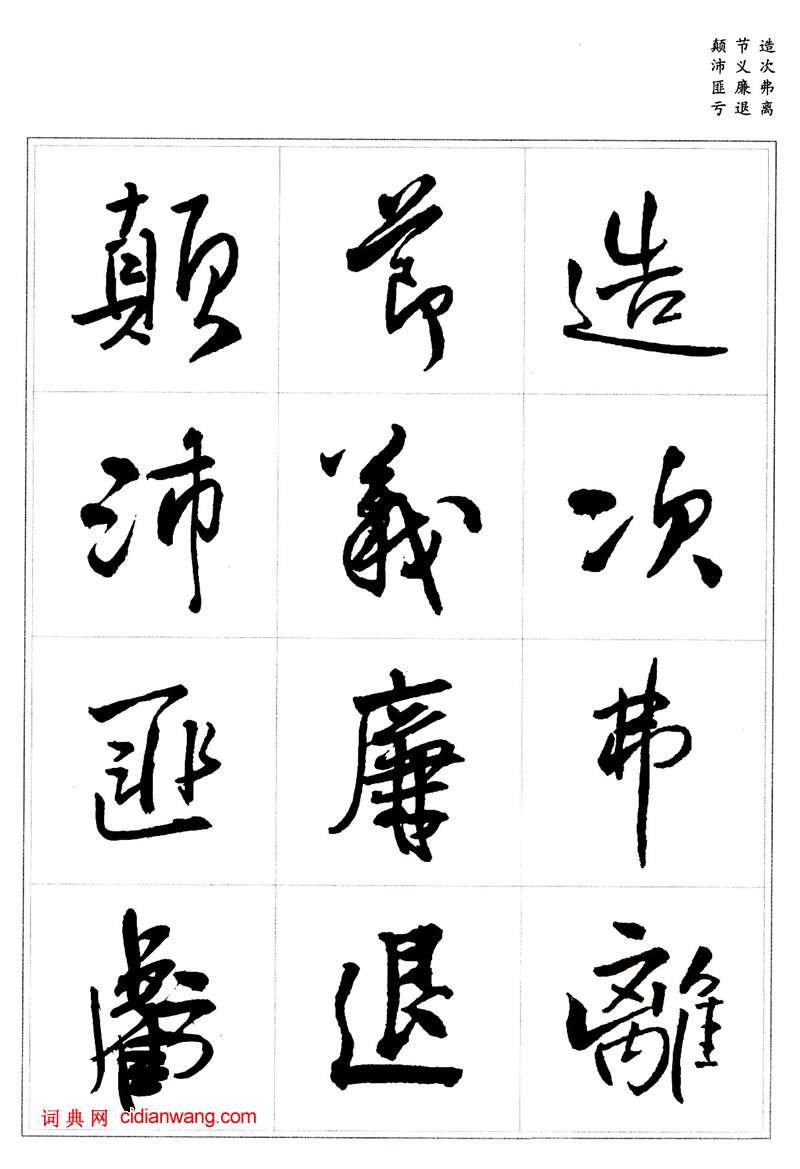 造次弗离
节义廉退
颠沛匪亏
造次弗離
節義廉退
顛沛匪虧
词典网 cidianwang.com